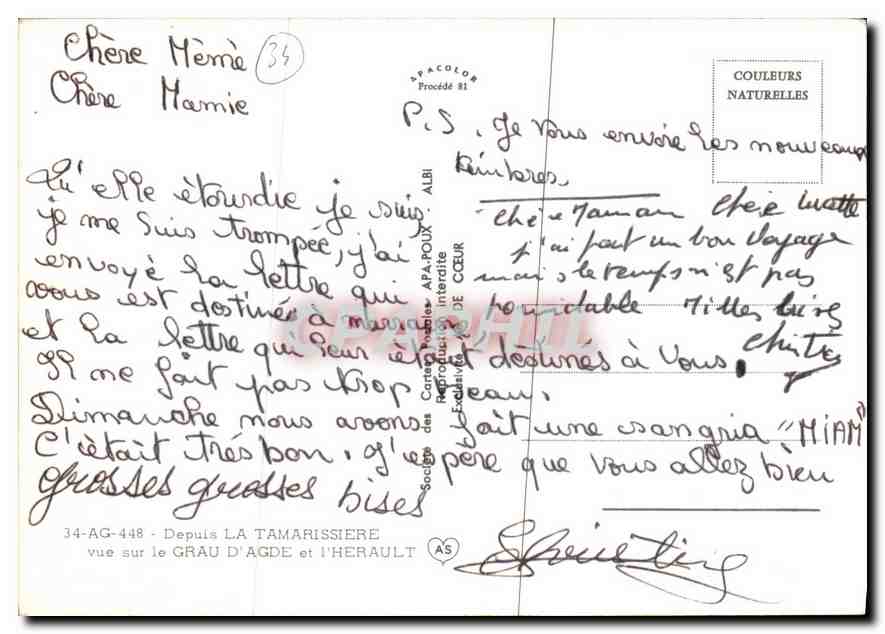 Chère Mèmè
34
Chère Mamie
Qu'elle ètourdie je suis,
je me suis trompée, j'ai
envoyè la lettre qui
vous est destinée à marraine,
et la lettre qui leur ètait dèstinés à vous.
Il ne fait pas trop beau.
Dimanche nous avons fait une sangria "MIAM"
C'ètait trés bon. J'espère que vous allez bien
grosses grosses bises
34-AG-448 - Depuis LA TAMARISSIERE
vue sur le GRAU D'AGDE et l'HERAULT
AS
Société des Cartes Postales APA-POUX - ALBI
Reproduction interdite
Exclusivité DE CŒUR
APACOLOR
Procédé 81
COULEURS
NATURELLES
P.S. Je vous envoie les nouveaux
timbres.
Chère Maman Chère Lucette
j'ai fait un bon voyage
mais le temps n'est pas
formidable Milles bises